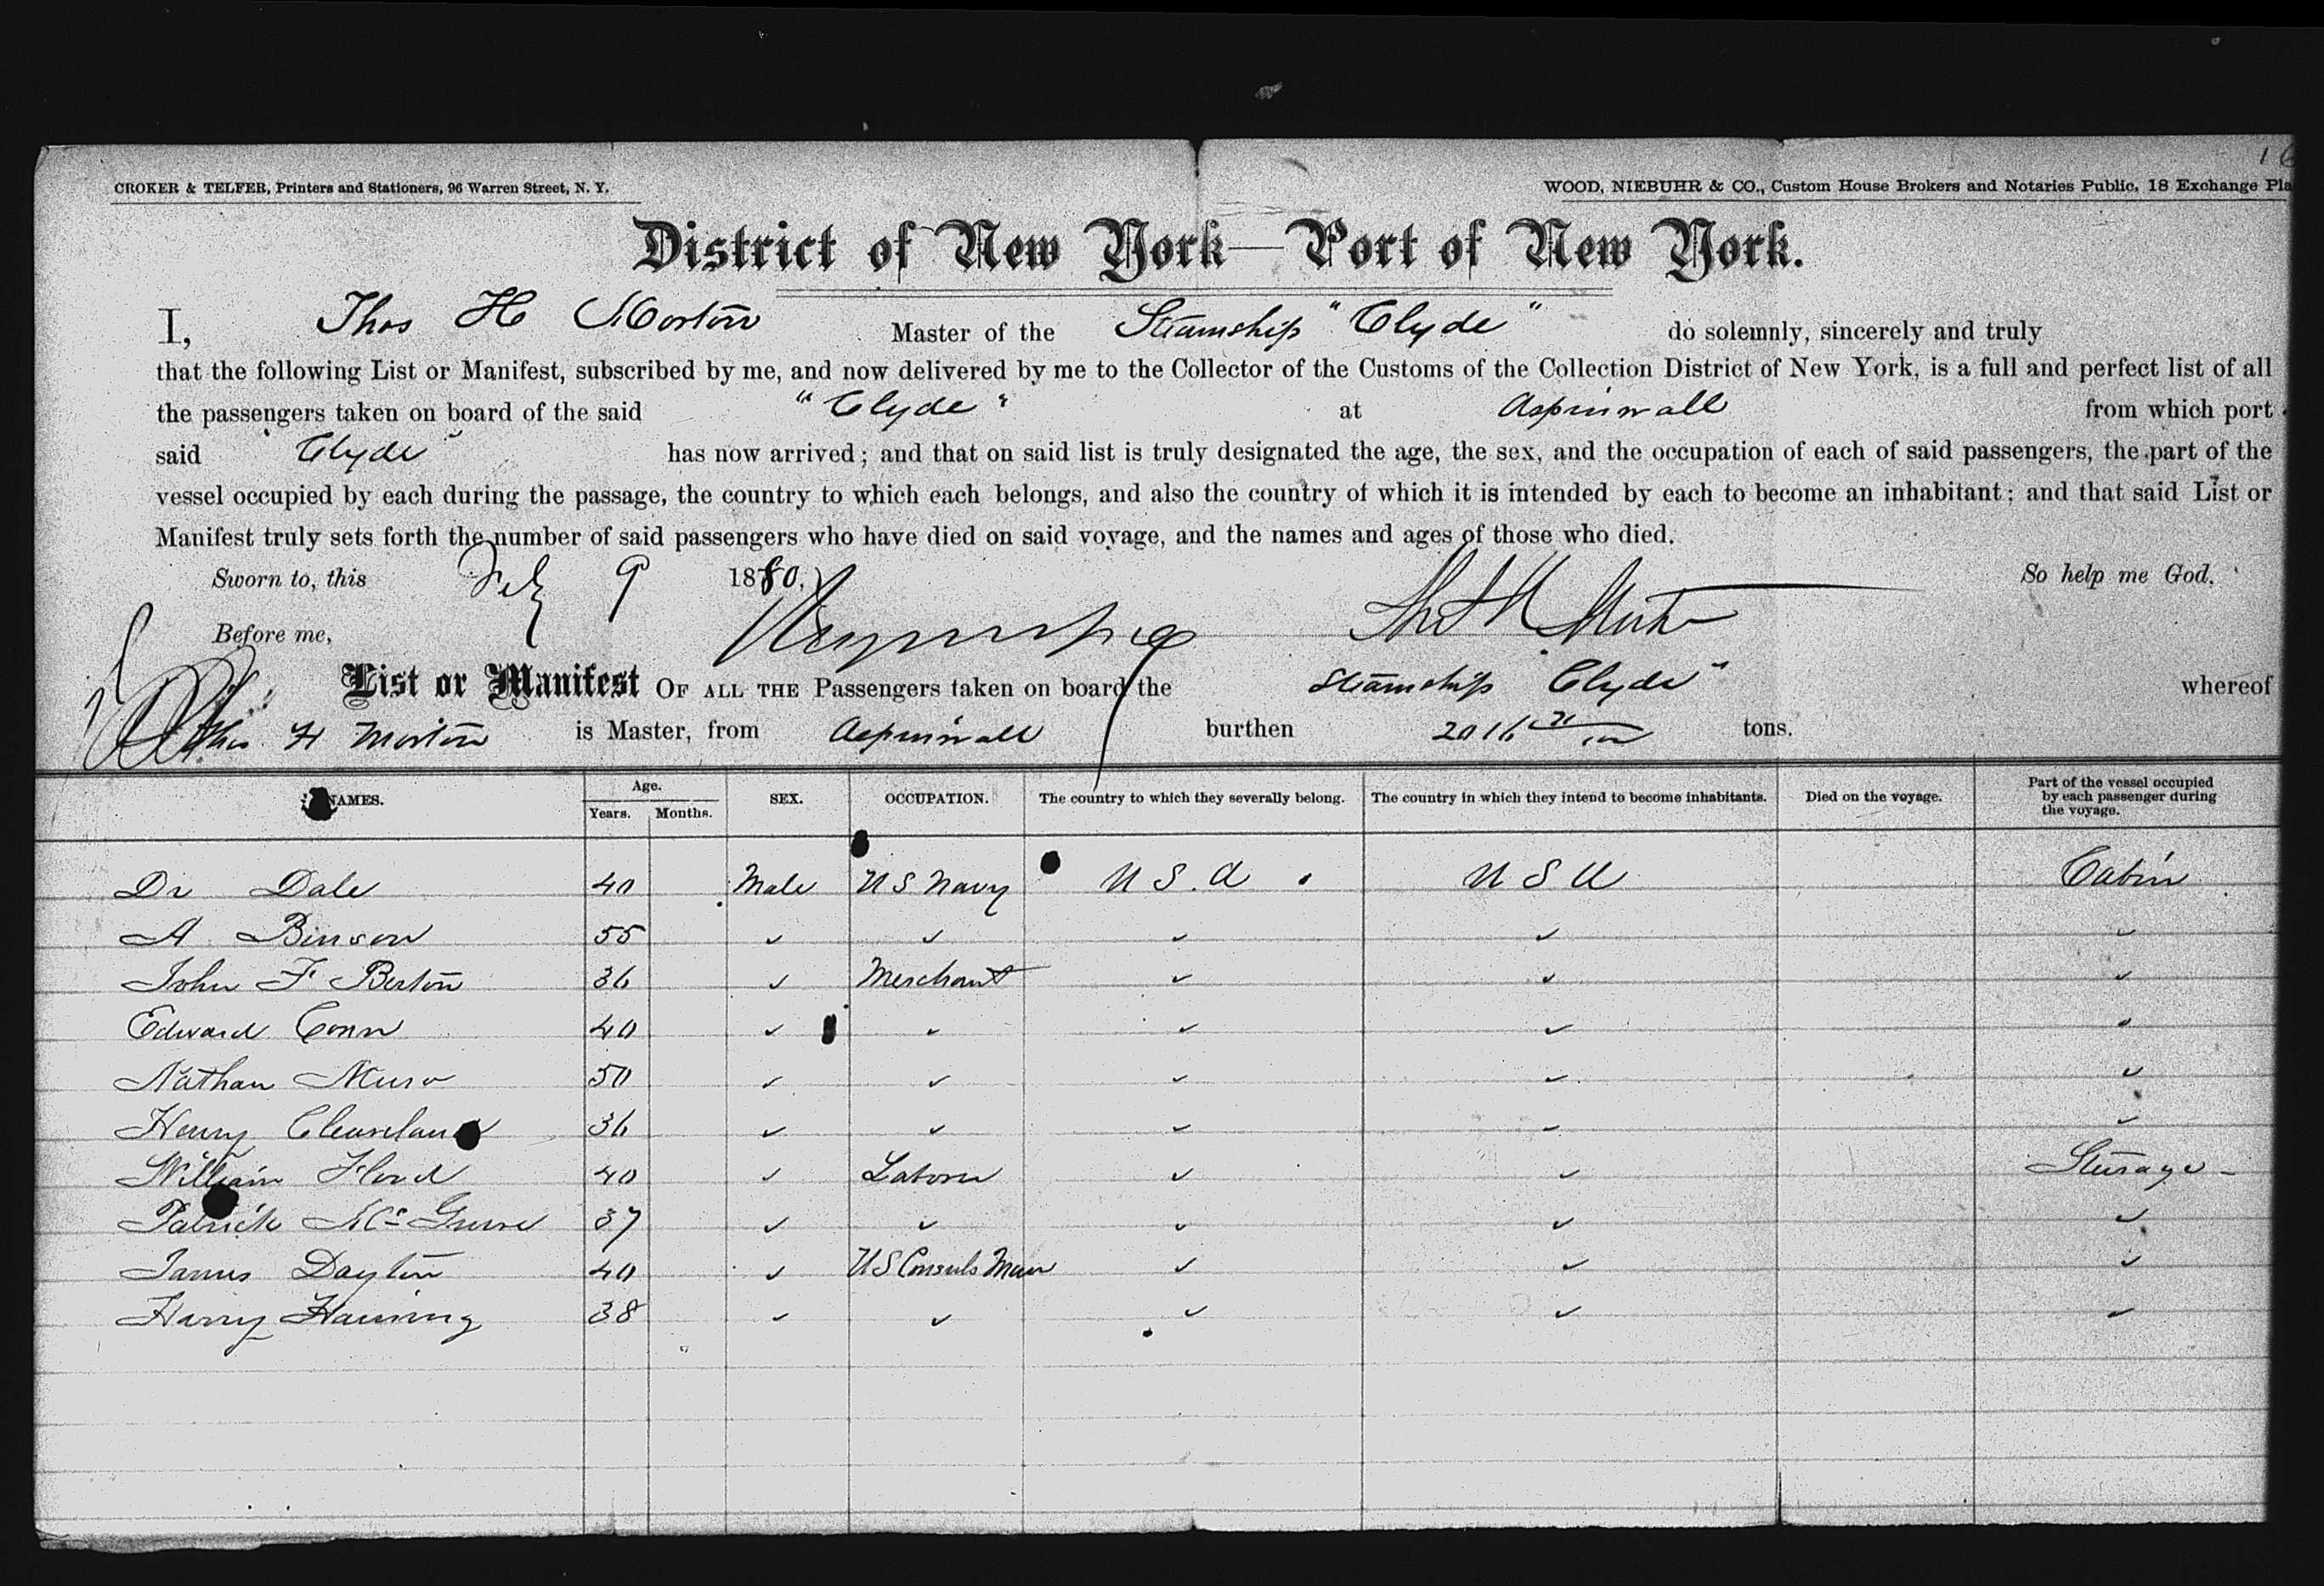 16
CROKER & TELFER, Printers and Stationers, 96 Warren Street, N. Y.
WOOD, NIEBUHR & CO., Custom House Brokers and Notaries Public, 18 Exchange Pla
District of New York—Port of New York.
I, Thos H Morton Master of the Steamship "Clyde" do solemnly, sincerely and truly
that the following List or Manifest, subscribed by me, and now delivered by me to the Collector of the Customs of the Collection District of New York, is a full and perfect list of all
the passengers taken on board of the said "Clyde" at Aspinwall from which port
said "Clyde" has now arrived; and that on said list is truly designated the age, the sex, and the occupation of each of said passengers, the part of the
vessel occupied by each during the passage, the country to which each belongs, and also the country of which it is intended by each to become an inhabitant; and that said List or
Manifest truly sets forth the number of said passengers who have died on said voyage, and the names and ages of those who died.
Sworn to, this Feby 9 1880. So help me God.
Before me,
List or Manifest OF ALL THE Passengers taken on board the Steamship "Clyde" whereof
Thos H Morton is Master, from Aspinwall burthen 2016 tons.
NAMES. Age. Years. Months. SEX. OCCUPATION. The country to which they severally belong. The country in which they intend to become inhabitants. Died on the voyage. Part of the vessel occupied by each passenger during the voyage.
Dr Dale 40 Male U S Navy U S. A U S A Cabin
A Binson 55 ✓ ✓ ✓ ✓ ✓
John F Berton 36 ✓ Merchant ✓ ✓ ✓
Edward Conn 40 ✓ ✓ ✓ ✓ ✓
Nathan 50 ✓ ✓ ✓ ✓ ✓
Henry Cleaveland 36 ✓ ✓ ✓ ✓ ✓
William Flood 40 ✓ Laborer ✓ ✓ Steerage
Patrick 37 ✓ ✓ ✓ ✓ ✓
James Dayton 40 ✓ U S Consuls Men ✓ ✓ ✓
Harry 38 ✓ ✓ ✓ ✓ ✓